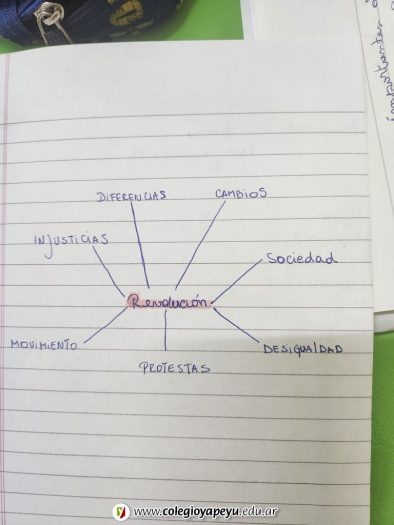 importantes
DIFERENCIAS
CAMBIOS
INJUSTICIAS
Sociedad
Revolución
MOVIMIENTO
DESIGUALDAD
PROTESTAS
www.colegioyapeyu.edu.ar